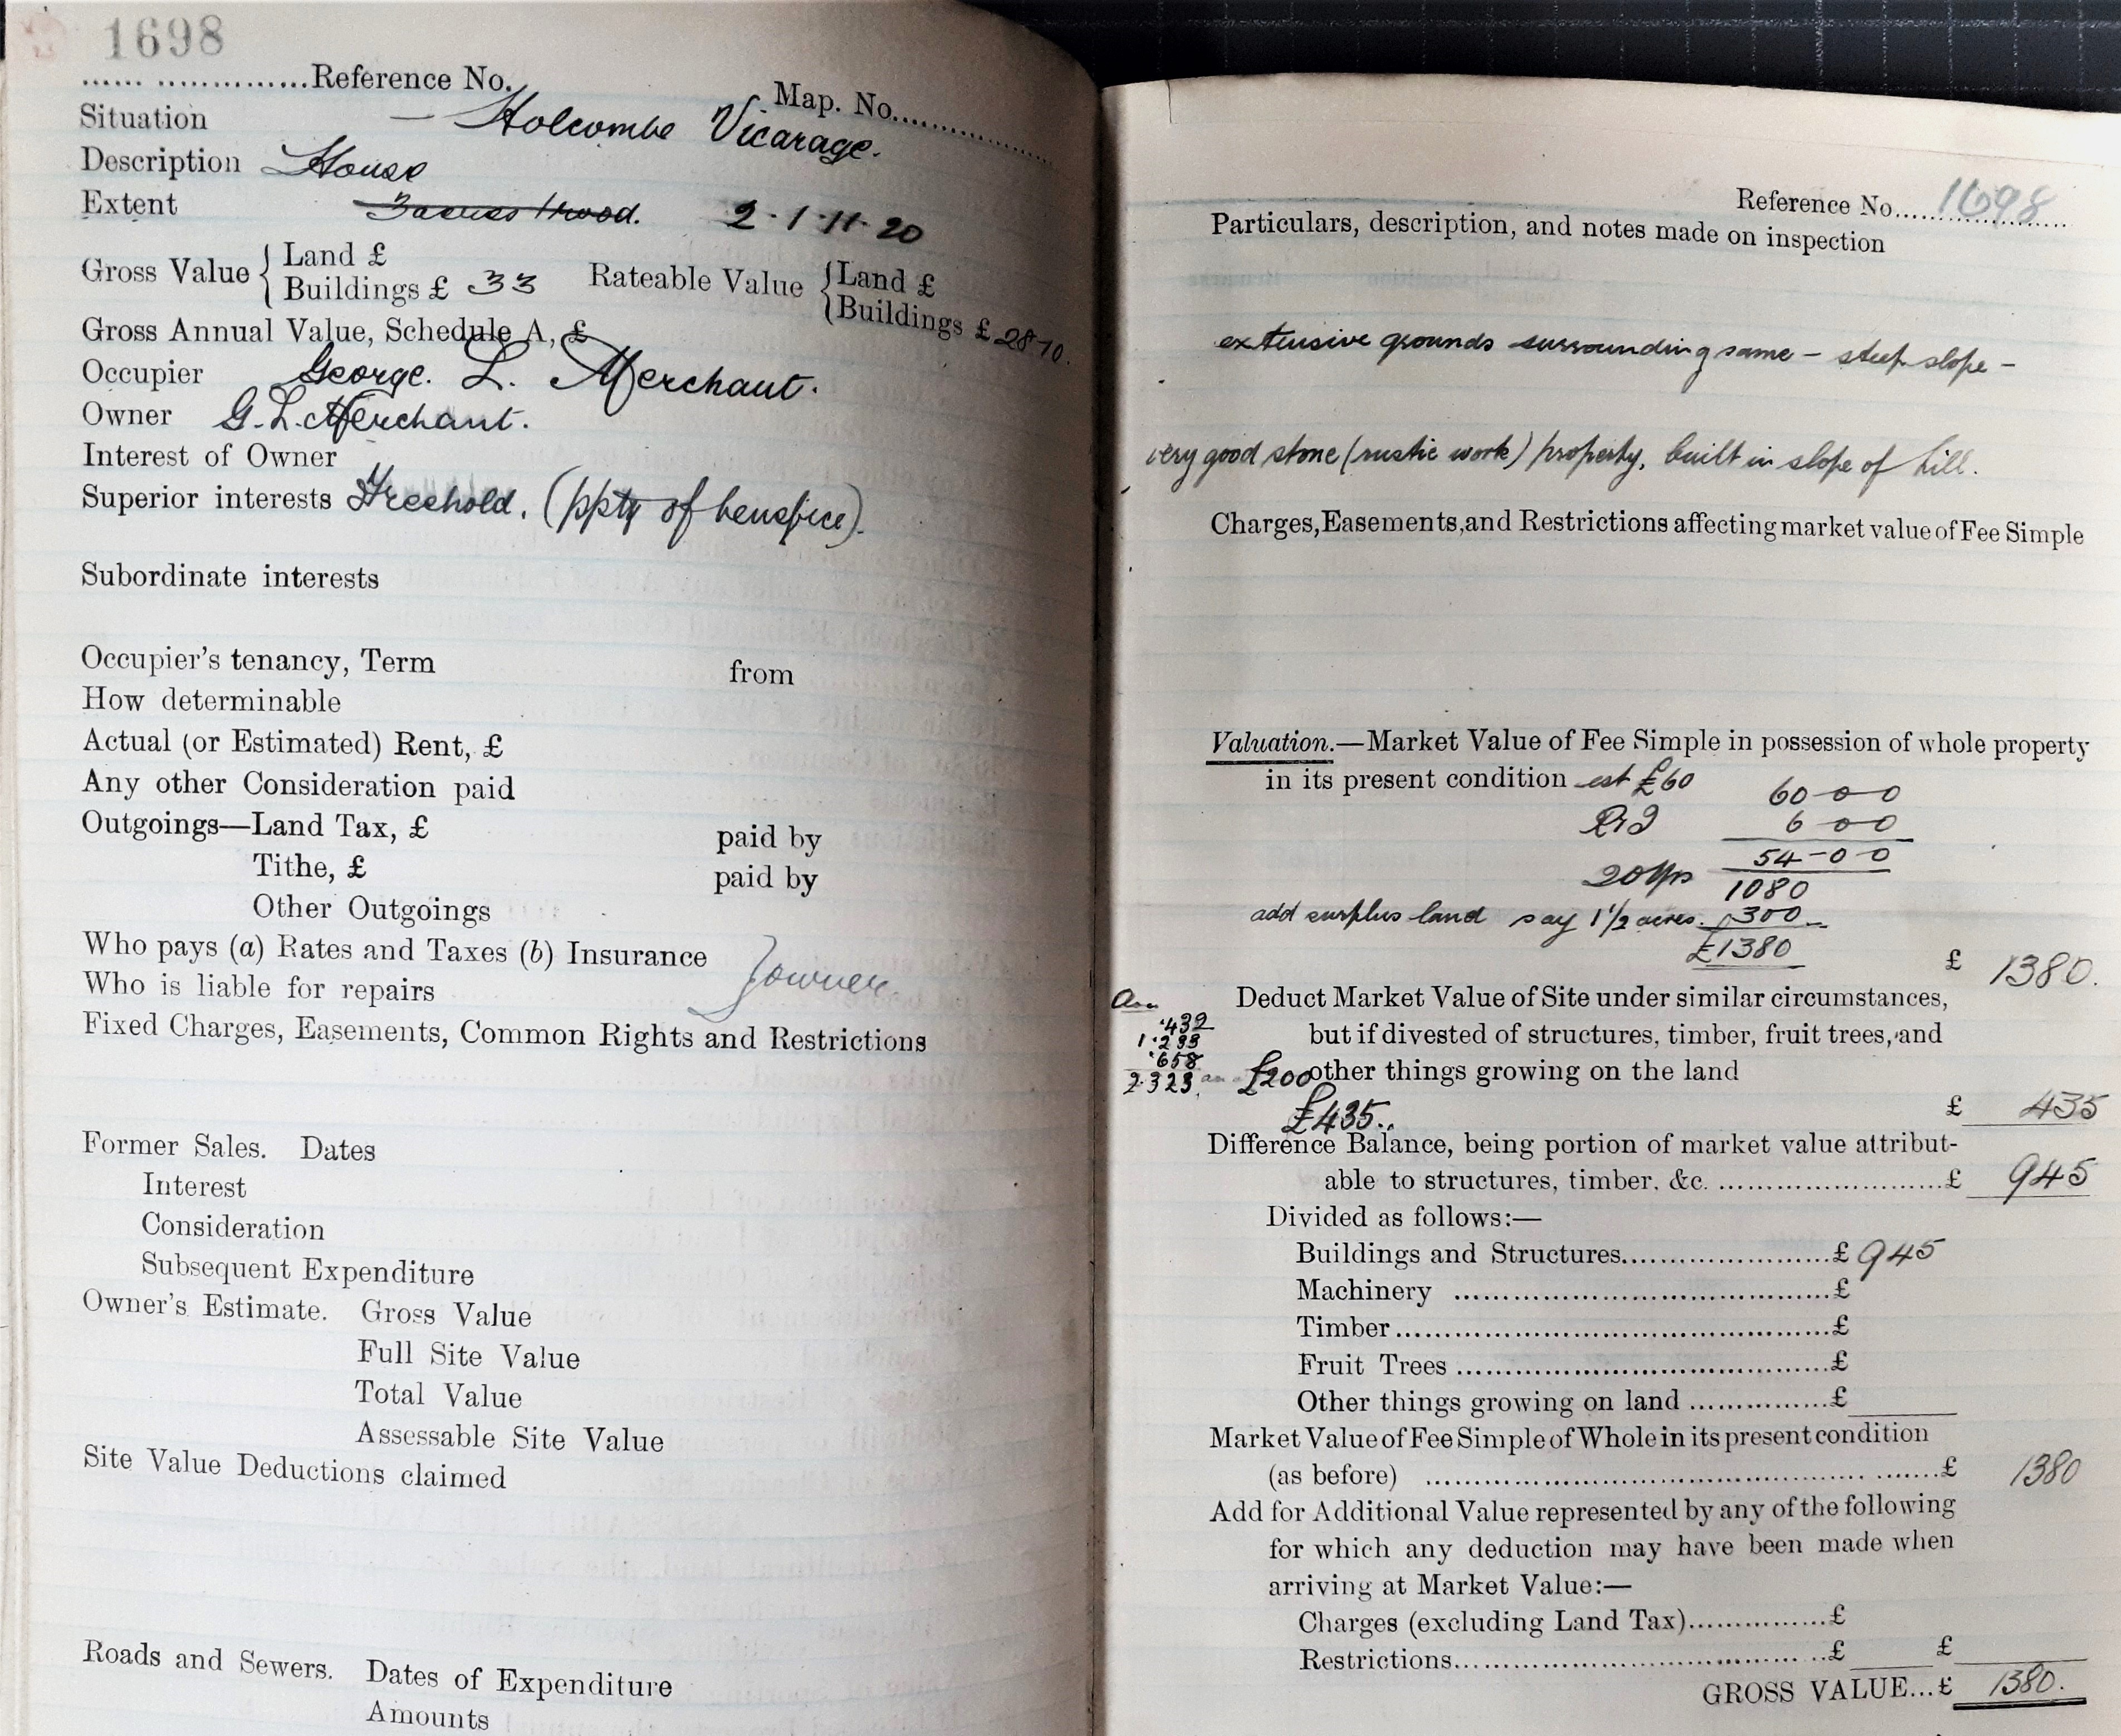 1698
Reference No. Map. No.
Situation — Holcombe Vicarage.
Description House
Extent 3 acres 1 rood. 2·1·11·20
Gross Value { Land £
Buildings £ 33
Rateable Value { Land £
Buildings £ 28 10.
Gross Annual Value, Schedule A, £
Occupier George. L. Merchant.
Owner G. L. Merchant.
Interest of Owner
Superior interests Freehold. (ppty of benefice).
Subordinate interests
Occupier's tenancy, Term from
How determinable
Actual (or Estimated) Rent, £
Any other Consideration paid
Outgoings—Land Tax, £ paid by
Tithe, £ paid by
Other Outgoings
Who pays (a) Rates and Taxes (b) Insurance } owner.
Who is liable for repairs
Fixed Charges, Easements, Common Rights and Restrictions
Former Sales. Dates
Interest
Consideration
Subsequent Expenditure
Owner's Estimate. Gross Value
Full Site Value
Total Value
Assessable Site Value
Site Value Deductions claimed
Roads and Sewers. Dates of Expenditure
Amounts
Reference No. 1698
Particulars, description, and notes made on inspection
extensive grounds surrounding same – steep slope –
very good stone (rustic work) property, built in slope of hill.
Charges, Easements, and Restrictions affecting market value of Fee Simple
Valuation.—Market Value of Fee Simple in possession of whole property
in its present condition est £60 60 - 0 - 0
R & I 6 0 0
54 - 0 - 0
20 Yrs 1080
add surplus land say 1 1/2 acres. 300
£1380
£ 1380.
Deduct Market Value of Site under similar circumstances,
but if divested of structures, timber, fruit trees, and
other things growing on the land
·432
1·233
·658
2·323 £200
£435.. £ 435
Difference Balance, being portion of market value attribut-
able to structures, timber, &c. £ 945
Divided as follows:—
Buildings and Structures £ 945
Machinery £
Timber £
Fruit Trees £
Other things growing on land £
Market Value of Fee Simple of Whole in its present condition
(as before) £ 1380
Add for Additional Value represented by any of the following
for which any deduction may have been made when
arriving at Market Value:—
Charges (excluding Land Tax) £
Restrictions £ £
GROSS VALUE...£ 1380.